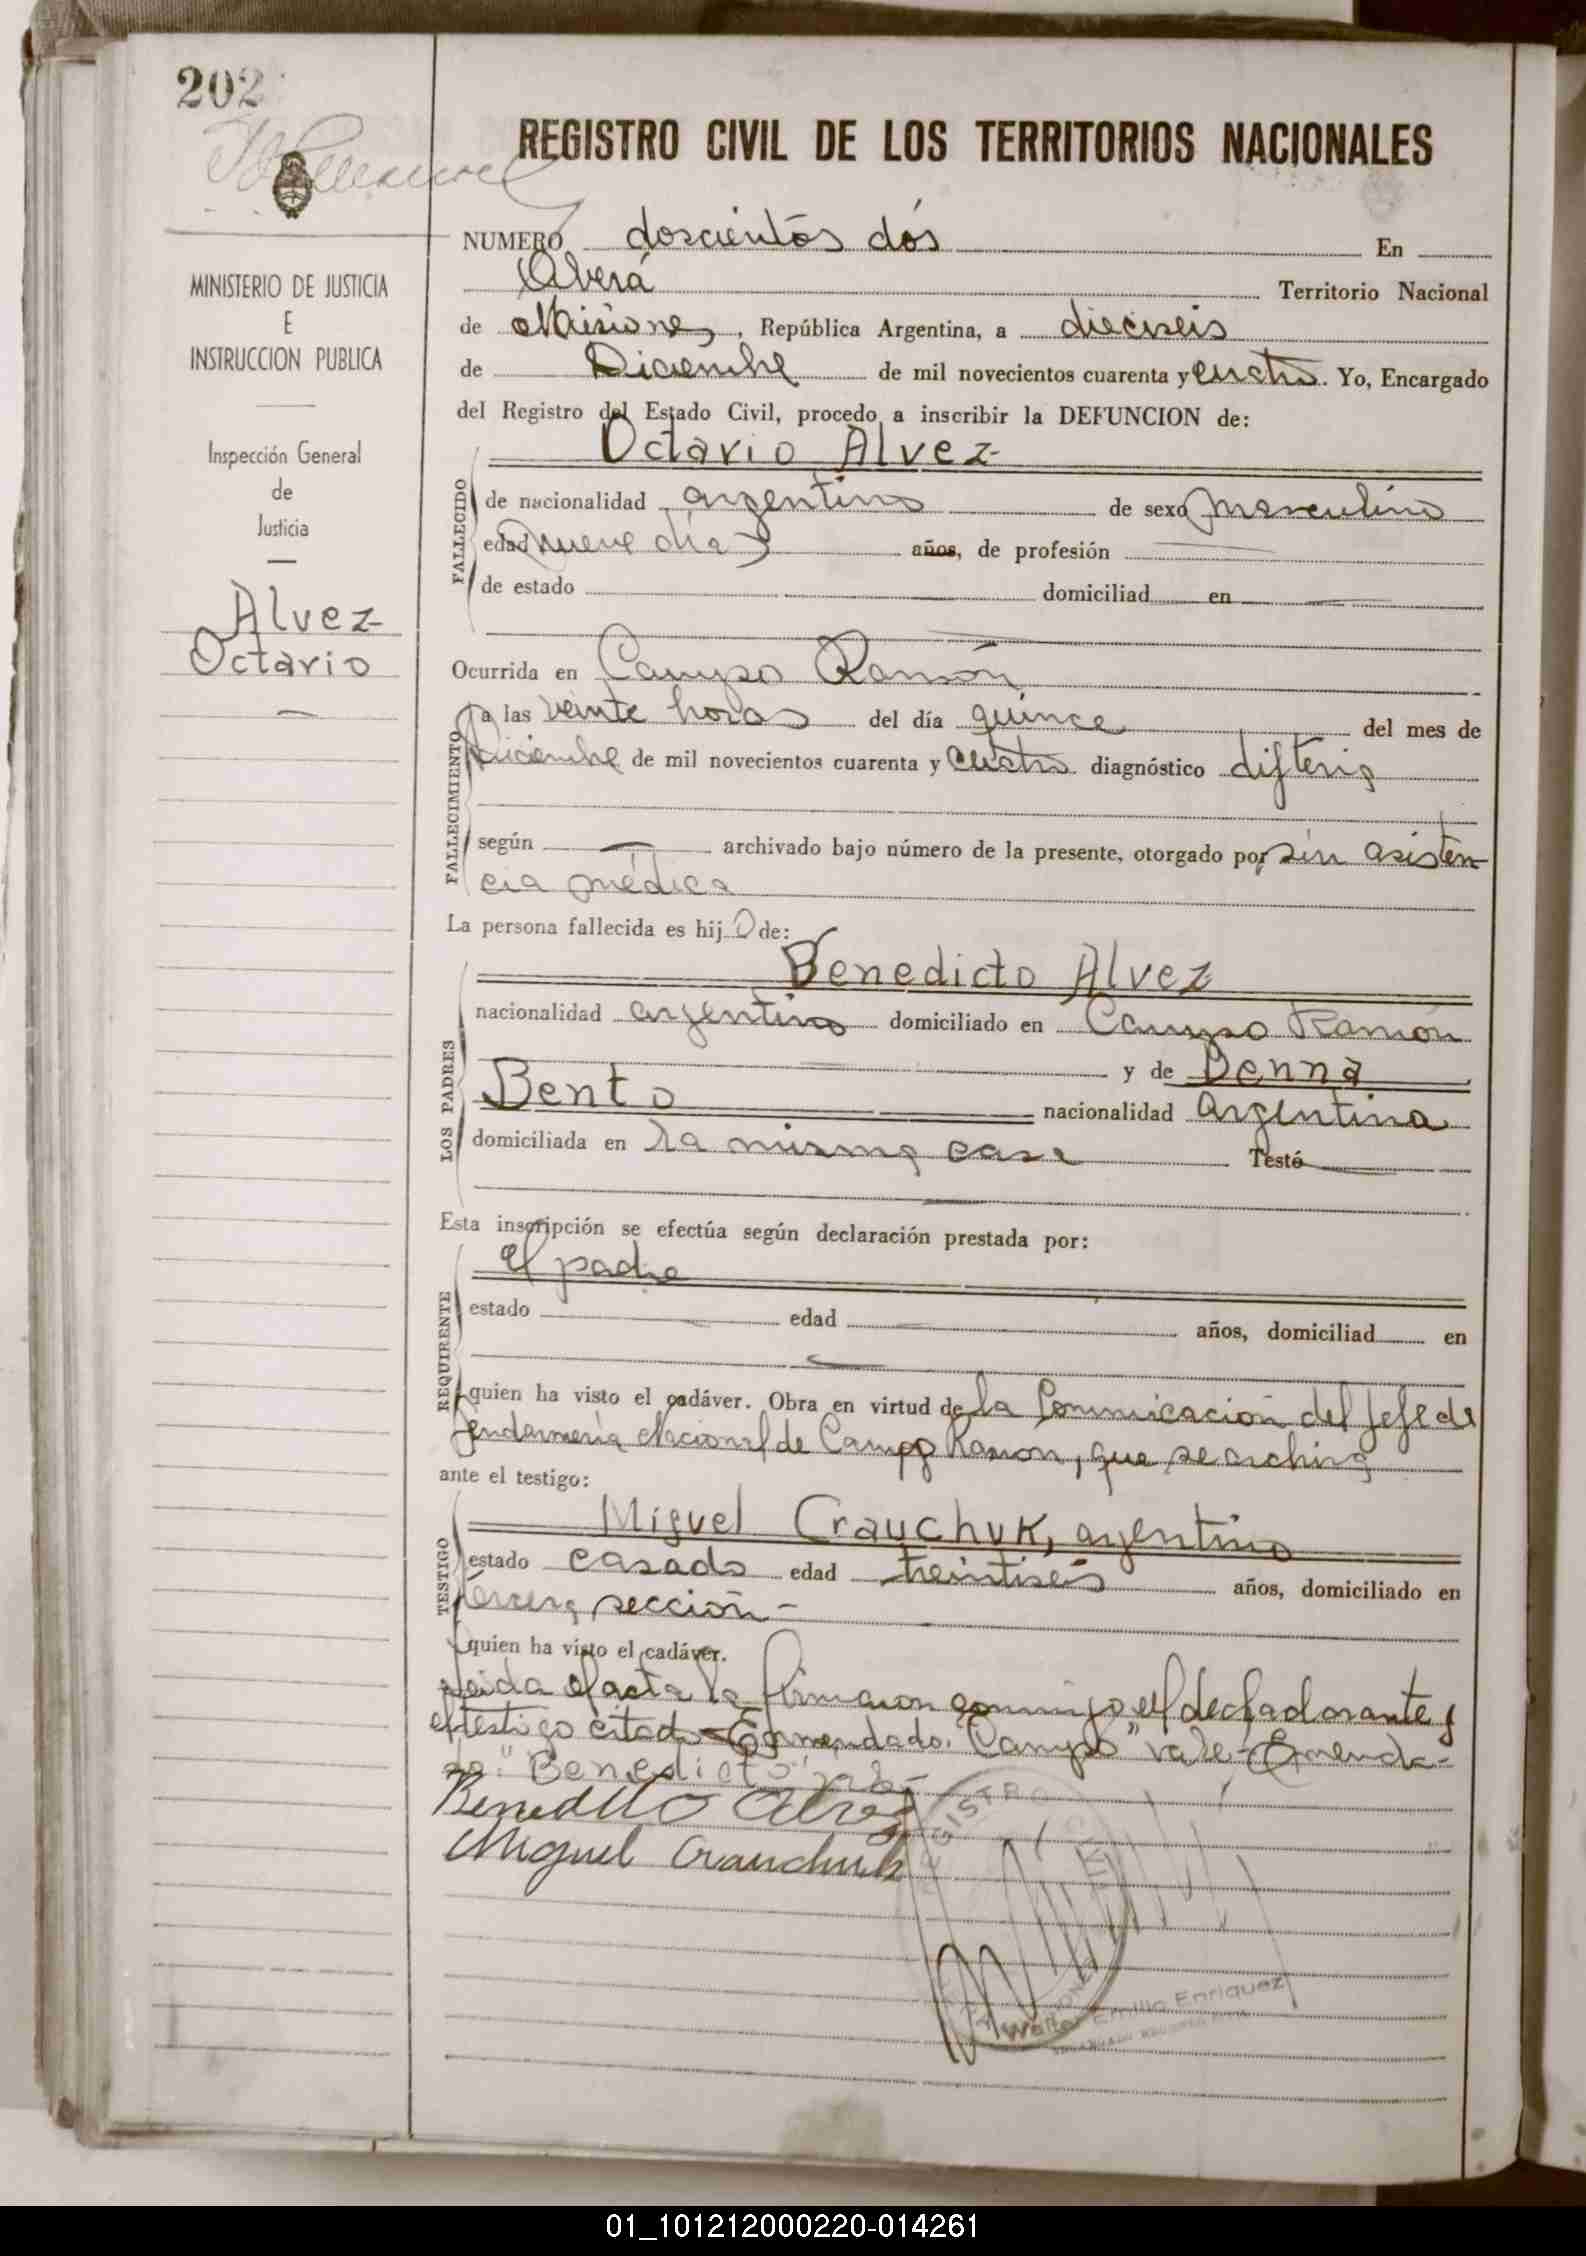 202
REGISTRO CIVIL DE LOS TERRITORIOS NACIONALES
MINISTERIO DE JUSTICIA
E
INSTRUCCION PUBLICA
Inspección General
de
Justicia
Alvez
Octavio
NUMERO doscientos dós En
Oberá Territorio Nacional
de Misiones, República Argentina, a dieciseis
de Diciembre de mil novecientos cuarenta y cuatro. Yo, Encargado
del Registro del Estado Civil, procedo a inscribir la DEFUNCION de:
Octavio Alvez
FALLECIDO
de nacionalidad argentino de sexo masculino
edad nueve días años, de profesión
de estado domiciliad en
Ocurrida en Campo Ramón
FALLECIMIENTO
a las veinte horas del día quince del mes de
Diciembre de mil novecientos cuarenta y cuatro diagnóstico difteria
según archivado bajo número de la presente, otorgado por sin asisten-
cia médica
La persona fallecida es hijo de:
LOS PADRES
Benedicto Alvez
nacionalidad argentino domiciliado en Campo Ramón
y de Benna
Bento nacionalidad argentina
domiciliada en la misma casa Testó
Esta inscripción se efectúa según declaración prestada por:
REQUIRENTE
el padre
estado edad años, domiciliad en
quien ha visto el cadáver. Obra en virtud de la Comunicación del Jefe de
Jendarmería Nacional de Campo Ramon, que se archiva
ante el testigo:
TESTIGO
Miguel Crauchuk, argentino
estado casado edad treintiseis años, domiciliado en
tercera sección-
quien ha visto el cadáver.
Leida el acta la firmaron conmigo el decladorante y
el testigo citado Enmendado "Campo" vale- Emenda-
do "Benedicto" vale-
Benedicto Alvez
Miguel Crauchuk
REGISTRO CIVIL
MISIONES
Walter Emilio Enriquez
01_101212000220-014261